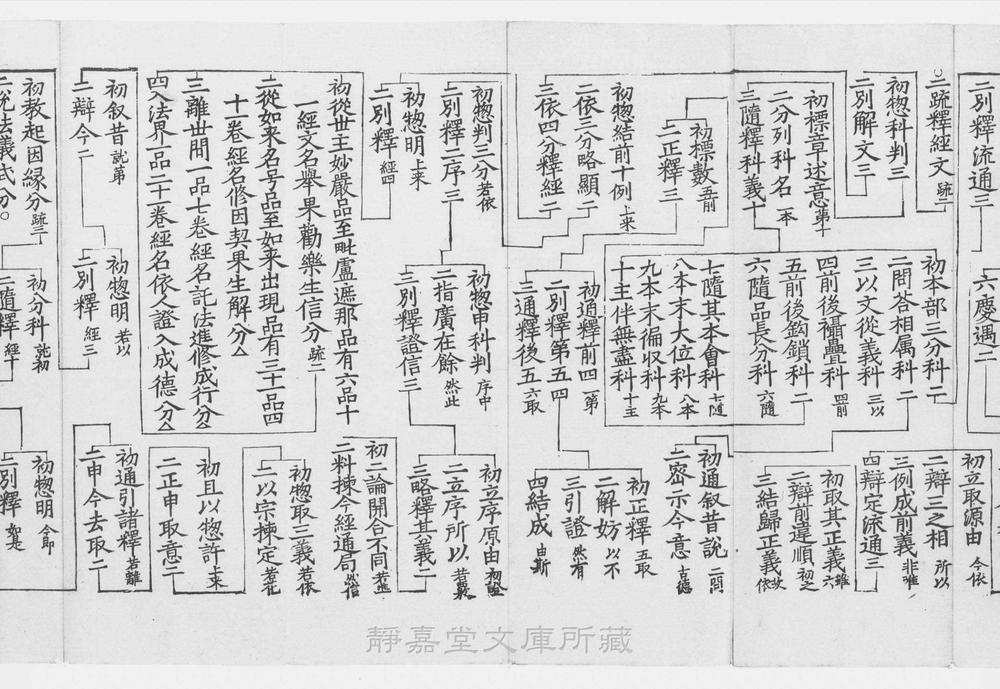 二別釋流通三
六慶遇二
初立取源由 今依
二辯三之相 所以
三例成前義 非唯
四辯定流通三
二疏釋經文 疏二
初惣科判三
二別解文三
初標章述意 第十
二分列科名 一本
三隨釋科義十
初本部三分科二
二問答相属科二
三以文從義科 三以
四前後襵疊科 四前
五前後鈎鎖科二
六隨品長分科 六隨
七隨其本會科 七隨
八本末大位科 八本
九本末徧收科 九本
十主伴無盡科 十主
初取其正義 六
二辯前違順 初之
三結歸正義
初通叙昔說 二問
二密示今意 古德
初標數 五前
二正釋三
初惣結前十例 上來
二依三分略顯二
三依四分釋經二
初通釋前四 一第
二別釋第五四
三通釋後五 六取
初正釋 五取
二解妨 以不
三引證 然有
四結成 由斯
初惣判三分 若依
二別釋二序三
初惣申科判 序中
二指廣在餘 然此
三別釋證信三
初立序原由
二立序所以
三略釋其義二
初惣明 上來
二別釋 經四
初從世主妙嚴品至毗盧遮那品有六品十
一經文名舉果勸樂生信分 疏二
二從如來名号品至如來出現品有三十一品四
十一卷經名修因契果生解分
三離世間一品七卷經名託法進修成行分
四入法界一品二十一卷經名依人證入成德分
初二論開合不同
二料揀今經通局
初惣取三義 若依
二以宗揀定
初且以惣許 上來
二正申取意二
初叙昔 就第
二辯今二
初惣明 若以
二別釋 經三
初通引諸釋 若離
二申今去取二
初教起因緣分 疏三
二說法義式分
初分科 就初
二隨釋 經十
初惣明 今即
二別釋 如是
靜嘉堂文庫所藏